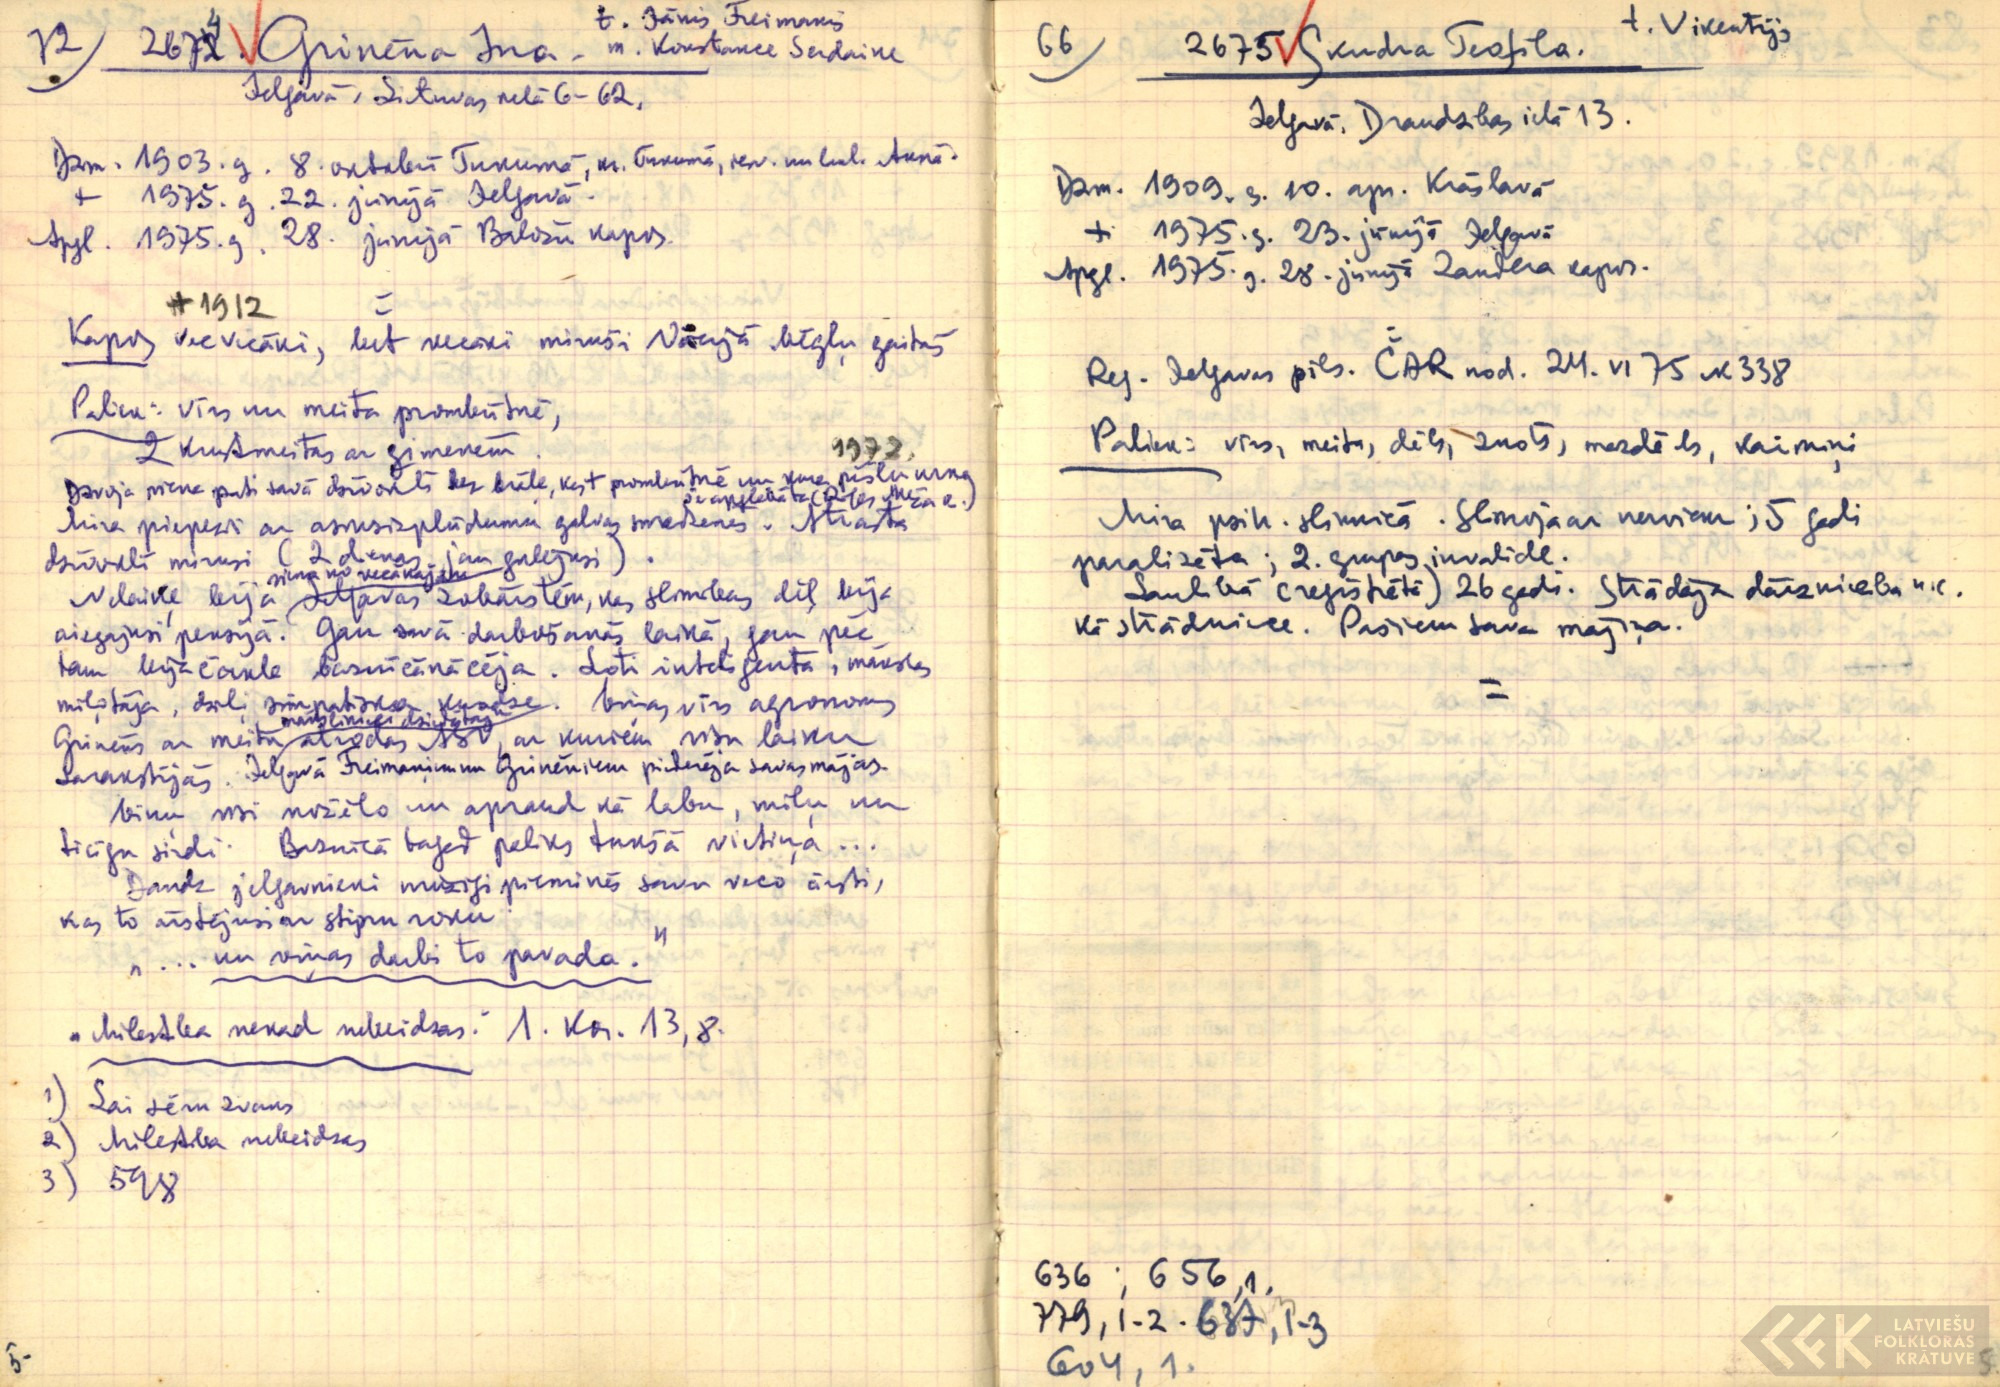 72) 2674. Grinēna Ina.
t. Jānis Freimanis
m. Konstance Serdaine
Jelgavā, Lietuvas ielā 6-62.
Dzm. 1903. g. 8. oktobrī Tukumā, kr. Tukumā,
+ 1975. g. 22. jūnijā Jelgavā.
Apgl. 1975. g. 28. jūnijā Baložu kapos.
+1912
Kapos vecvecāki, bet vecāki miruši Vācijā bēgļu gaitās
Paliek: vīrs un meita prombūtnē,
2 krustmeitas ar ģimenēm.
1972.
Dzīvoja viena pati savā dzīvoklī bez brāļa, kas + prombūtnē un kura pīšļu urna
Mira piepeši ar asinsizplūdumu galvas smadzenēs. Atrasta
dzīvoklī mirusi (2 dienas jau gulējusi).
viena no vecākajām
Nelaiķe bija Jelgavas zobārstēm, kas slimības dēļ bija
aizgājusi pensijā. Gan savā darbošanās laikā, gan pēc
tam bija čakla baznīcānācēja. Ļoti inteliģenta, mākslas
mīļotāja, dziļi simpatiska
Viņas vīrs agronoms
Grinēns ar meitu atrodas ASV, ar kuriem visu laiku
sarakstījās. Jelgavā Freimaņiem un Grinēniem piederēja savas mājas.
Viņu visi nožēlo un apraud kā labu, mīļu un
ticīgu sirdi. Baznīcā tagad paliks tukša vietiņa ...
Daudz jelgavnieki mūžīgi pieminēs savu veco ārsti,
kas to ārstējusi ar stipru roku.
"... un viņas darbi to pavada."
"Mīlestība nekad nebeidzas." 1. Kor. 13,8.
1) Lai sēru zvans
2) Mīlestība nebeidzas
3) 598
5-
66) 2675 Skudra Teofila.
t. Vikentijs
Jelgavā, Draudzības ielā 13.
Dzm. 1909. g. 10. apr. Krāslavā
+ 1975. g. 23. jūnijā Jelgavā
Apgl. 1975. g. 28. jūnijā Zandera kapos.
=
Reģ. Jelgavas pils. CAR nod. 24. VI 75 N 338
Paliek: vīrs, meita, dēls, znots, mazdēls, kaimiņi
Mira psih. slimnīcā. Slimoja ar nerviem; 5 gadi
paralizēta; 2. grupas invalīde.
Laulībā (reģistrētā) 26 gadi. Strādāja dārzniecībā u.c.
kā strādniece. Pašiem sava mājiņa.
=
636; 656,1.
779, 1-2. 637, 1-3
604, 1.
LATVIEŠU
FOLKLORAS
KRĀTUVE